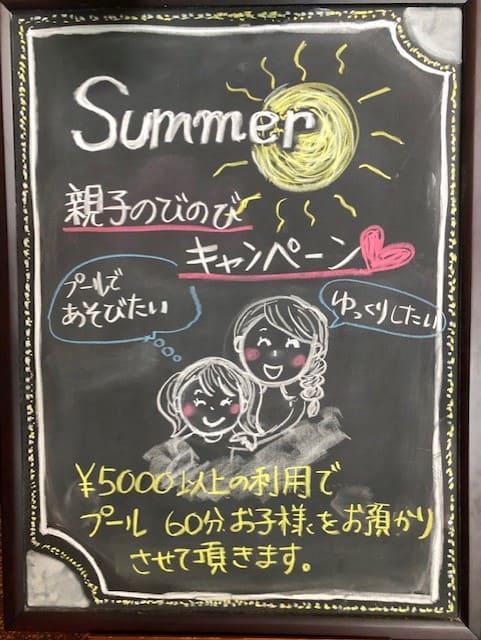 Summer
親子のびのび
キャンペーン
プールで
あそびたい
ゆっくりしたい
¥5000以上の利用で
プール 60分 お子様をお預かり
させて頂きます。